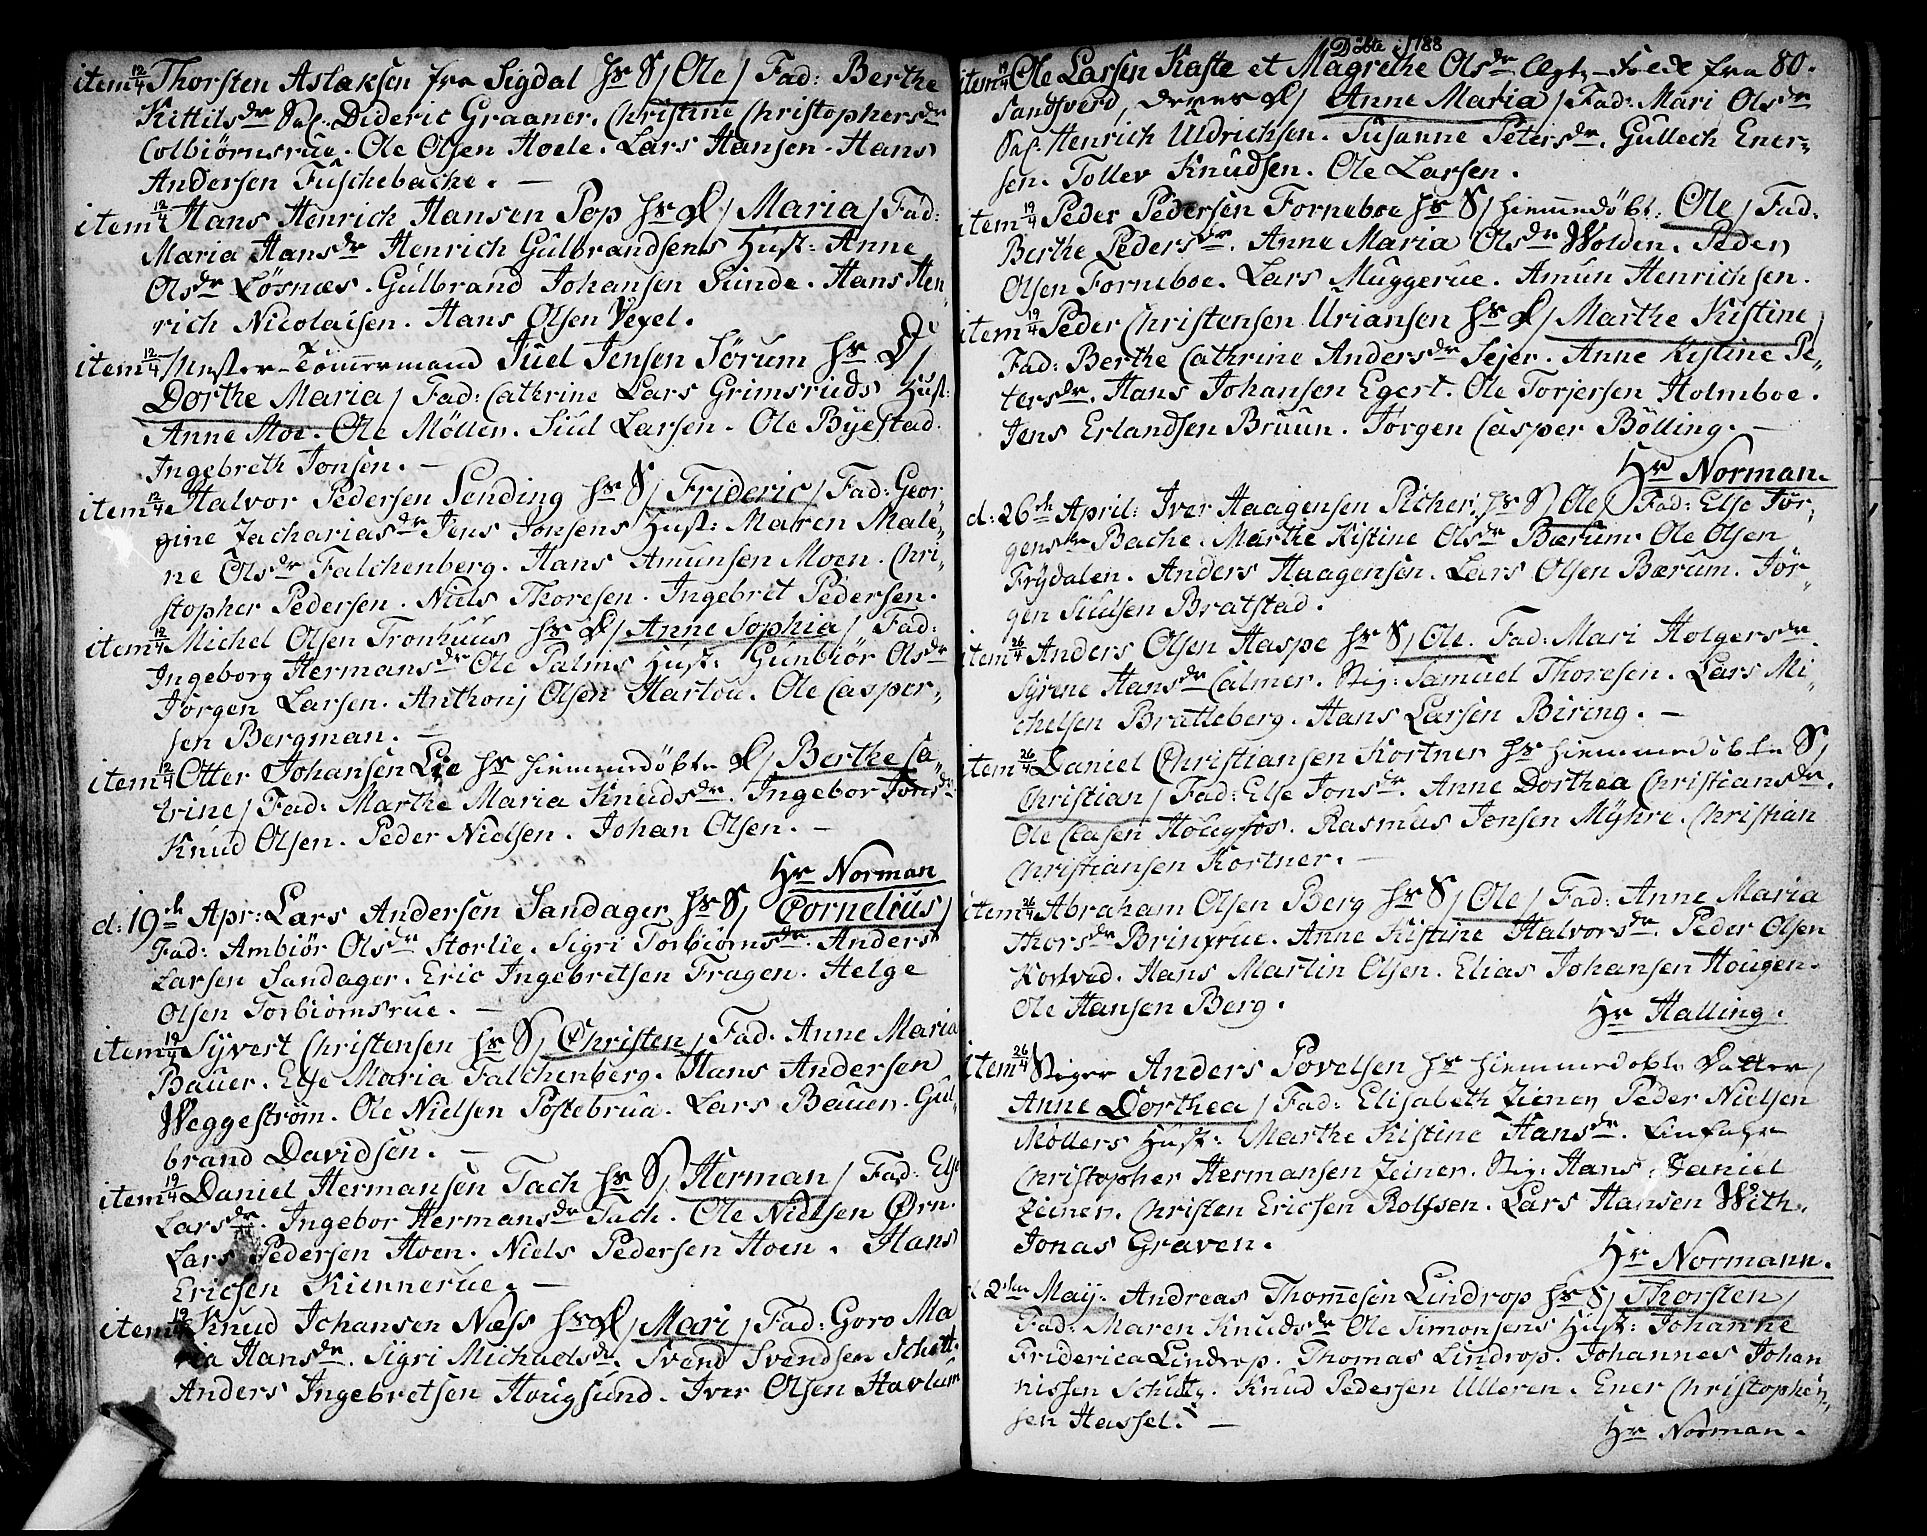 item 12/4 Thorsten Aslaksen fra Sigdal hs S/ Ole / Fad: Berthe
Kittilsdr Sal. Dideric Graaner. Christine Christophersdr
Colbiørnsrue. Ole Olsen Hoele. Lars Hansen. Hans
Andersen Fuschebache. —
item 12/4 Hans Henrich Hansen Pop hs D/ Maria / Fad:
Maria Hansdr Henrich Gulbrandsens Hust: Anne
Olsdr Løsnæs. Gulbrand Johansen Sunde. Hans Hen-
rich Nicolaisen. Hans Olsen Vexel.
item 12/4 Unster-Tømmermand Juel Jensen Sørum hs D/
Dorthe Maria / Fad: Cathrine Lars Grimsruds Hust:
Anne Moe. Ole Møller. Juul Larsen. Ole Byestad.
Ingebreth Jonsen. —
item 12/4 Halvor Pedersen Sending hs S/ Frideric / Fad: Geor-
gine Zachariasdr Jens Jonsens Hust: Maren Male-
ne Olsdr Falchenberg. Hans Amunsen Moen. Chri-
stopher Pedersen. Niels Thoresen. Ingebret Pedersen.
item 12/4 Michel Olsen Tronhuus hs D/ Anne Sophia / Fad:
Ingeborg Hermansdr Ole Palms Hust: Gunbiør Olsdr
Jørgen Larsen. Anthonj Olsen Hartou. Ole Casper-
sen Bergman. —
item 12/4 Otter Johansen Lie hs hiemmedøbte D/ Berthe Ca-
trine / Fad: Marthe Maria Knudsdr. Ingebor Jonsdr
Knud Olsen. Peder Nielsen. Johan Olsen. —
Hr Norman
d: 19de Apr: Lars Andersen Sandager hs S/ Cornelius /
Fad: Ambiør Olsdr Storlie. Sigri Torbiørnsdr. Anders
Larsen Sandager. Eric Ingebretsen Fragen. Helge
Olsen Torbiørnsrue. —
item 19/4 Syvert Christensen hs S/ Christen / Fad: Anne Maria
Bauer. Else Maria Falchenberg. Hans Andersen
Weggestrøm. Ole Nielsen Postebrua. Lars Bauer. Gul-
brand Davidsen. —
item 19/4 Daniel Hermansen Tach hs S/ Herman / Fad: Else
Larsdr. Ingebor Hermansdr Tach. Ole Nielsen Ørn.
Lars Pedersen Hoen. Niels Pedersen Hoen. Hans
Ericsen Kiennerue. —
item 19/4 Knud Johansen Næss hs D/ Mari / Fad: Goro Ma
ria Hansdr. Sigri Michaelsdr. Svend Svendsen Schott.
Anders Ingebretsen Hougsund. Iver Olsen Havlum
Døbte i 1788
80.
item 19/4 Ole Larsen Kaste et Magrethe Olsdr Ægte-Folck fra
Sandsverd, deres D/ Anne Maria / Fad: Mari Olsdr
Sal. Henrich Uldrichsen. Susanne Petersdr. Gullech Ener-
sen. Tollev Knudsen. Ole Larsen.
item 19/4 Peder Pedersen Forneboe hs S/ hiemmedøbt: Ole / Fad.
Berthe Pedersdr. Anne Maria Olsdr Wolden. Peder
Olsen Forneboe. Lars Muggerue. Amun Henrichsen.
item 19/4 Peder Christensen Uriansen hs D/ Marthe Kistine /
Fad: Berthe Cathrine Andersdr Sejer. Anne Kistine Pe-
tersdr. Hans Johansen Egert. Ole Torjersen Holmboe.
Jens Erlandsen Bruun. Jørgen Casper Bølling. —
Hr Norman.
d: 26de April: Iver Haagensen Picher, hs S/ Ole / Fad: Else Jør-
gensdr Bache. Marthe Kistine Olsdr Bærum. Ole Olsen
Frydalen. Anders Haagensen. Lars Olsen Bærum. Jør-
gen Juulsen Bratstad.
item 26/4 Anders Olsen Haspe hs S/ Ole. Fad: Mari Holgersdr
Syrene Hansdr Calmer. Stig: Samuel Thoresen. Lars Mi-
chelsen Bratteberg. Hans Larsen Biring. —
item 26/4 Daniel Christiansen Kortner hs hiemmedøbte S/
Christian / Fad: Else Jonsdr. Anne Dorthea Christiansdr.
Ole Clasen Hougfos. Rasmus Jonsen Myhre. Christian
Christiansen Kortner. —
item 26/4 Abraham Olsen Berg hs S/ Ole / Fad: Anne Maria
Thorsdr Brinxrue. Anne Kistine Halvorsdr. Peder Olsen
Kortvad. Hans Martin Olsen. Elias Johansen Hougen.
Ole Hansen Berg.
Hr Halling.
item 26/4 Stiger Anders Povelsen hs hiemmedøbte Datter /
Anne Dorthea / Fad: Elisabeth Zeiner Peder Nielsen
Møllers Hust: Marthe Kistine Hansdr. Einfahr
Christopher Hermansen Zeiner. Stig: Hans Daniel
Zeiner. Christen Ericsen Rolfsen. Lars Hansen With.
Jonas Graven.
Hr Normann.
d 2den Maij: Andreas Thomesen Lindrop hs S/ Thorsten /
Fad: Maren Knudsdr Ole Simonsens Hust: Johanne
Friderica Lindrop. Thomas Lindrop. Johannes Johan
nissen Schutz. Knud Pedersen Ulleren. Ener Christophen-
sen Hassel. —
Hr Norman.